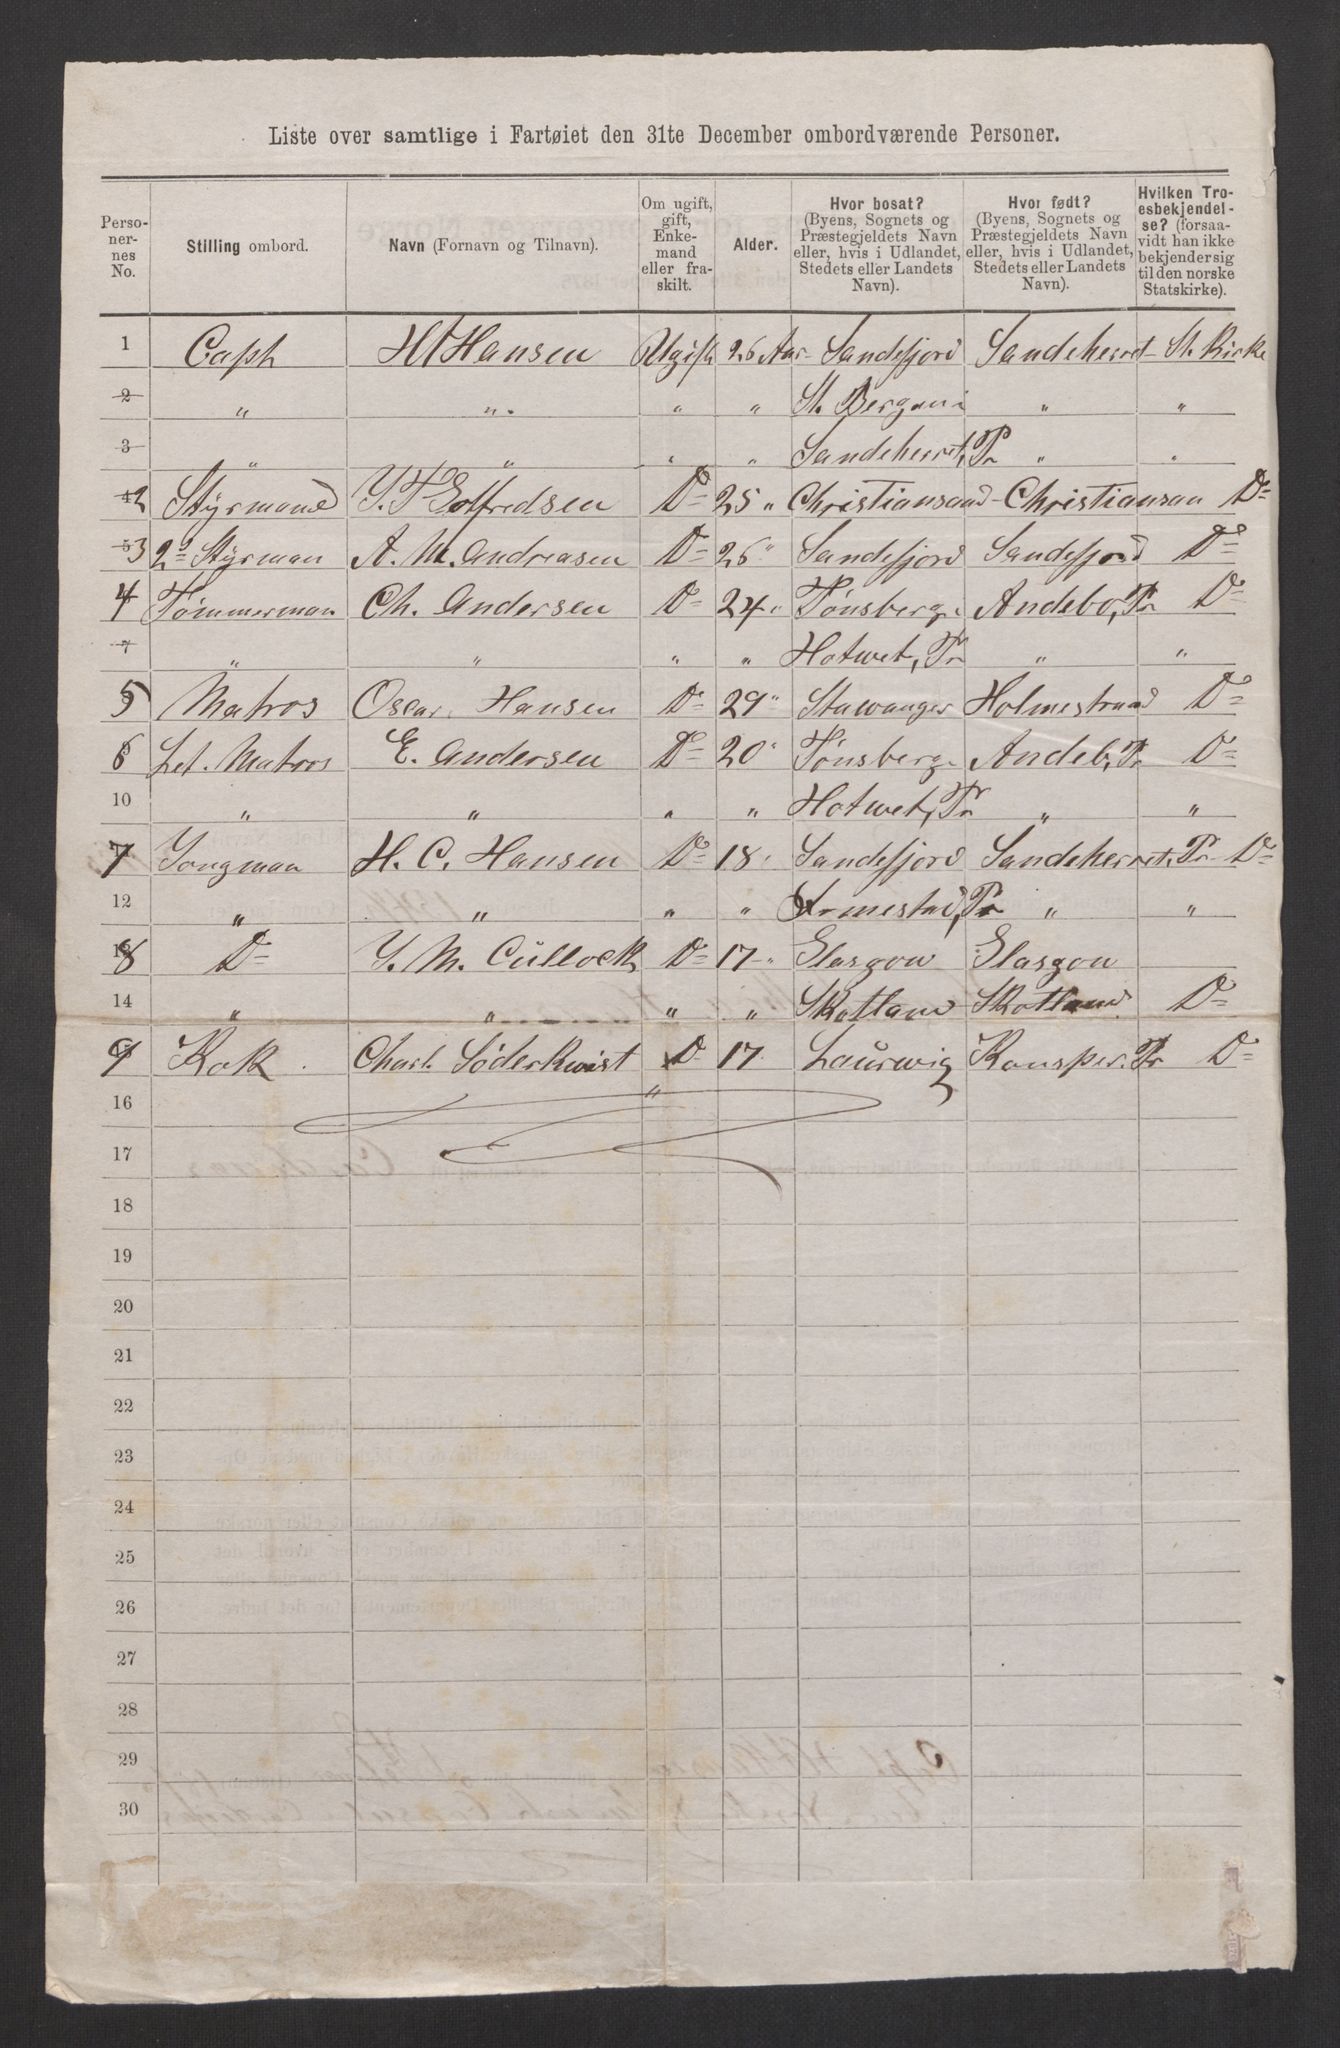 Liste over samtlige i Fartøiet den 31te December ombordværende Personer.
Perso-
ner-
nes
No.
Stilling ombord.
Navn (Fornavn og Tilnavn).
Om ugift,
gift,
Enke-
mand
eller fra-
skilt.
Alder.
Hvor bosat?
(Byens, Sognets og
Præstegjeldets Navn
eller, hvis i Udlandet,
Stedets eller Landets
Navn).
Hvor født?
(Byens, Sognets og
Præstegjeldets Navn
eller, hvis i Udlandet,
Stedets eller Landets
Navn).
Hvilken Tro-
esbekjendel-
se? (forsaa-
vidt han ikke
bekjender sig
til den norske
Statskirke).
1 Capt H Hansen Ugift 26 Aar Sandefjord Sandeherret St. Kirke
2 " " " " St. Bergan " "
3 " " " " Sandeherret, Pr " "
2 Styrmand Y. T Golfredsen D= 25 " Christiansand Christiansan D=
3 2= Styrman A. M. Andreasen D= 26 " Sandefjord Sandefjord D=
4 Tømmerman Ch. Andersen D= 24 " Tønsberg Andebo, Pr D=
7 " " " " Hotwet, Pr " "
5 Matros Oscar Hansen D= 29 " Stawanger Holmestrand D=
6 Let. Matros E. Andersen D= 20 " Tønsberg Andeb, Pr D=
10 " " " " Hotwet, Pr " "
7 Yongman H. C. Hansen D= 18 " Sandefjord Sandeherret, Pr D=
12 " " " " Pr " "
8 D= Y. M. Cullock D= 17 " Glasgow Glasgow
14 " " " " Skotland Skotland D=
9 Kok Charl. Söderkwist D= 17 Laurwig Pr D=
"
16
17
18
19
20
21
22
23
24
25
26
27
28
29
30